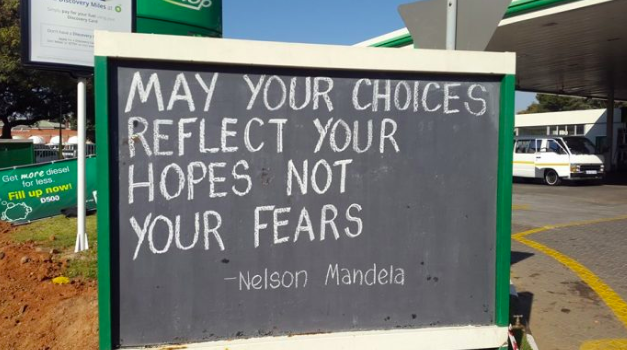 Discovery Miles at
bp
MAY YOUR CHOICES
REFLECT YOUR
HOPES NOT
YOUR FEARS
-Nelson Mandela
Get more diesel
for less.
Fill up now!
D500